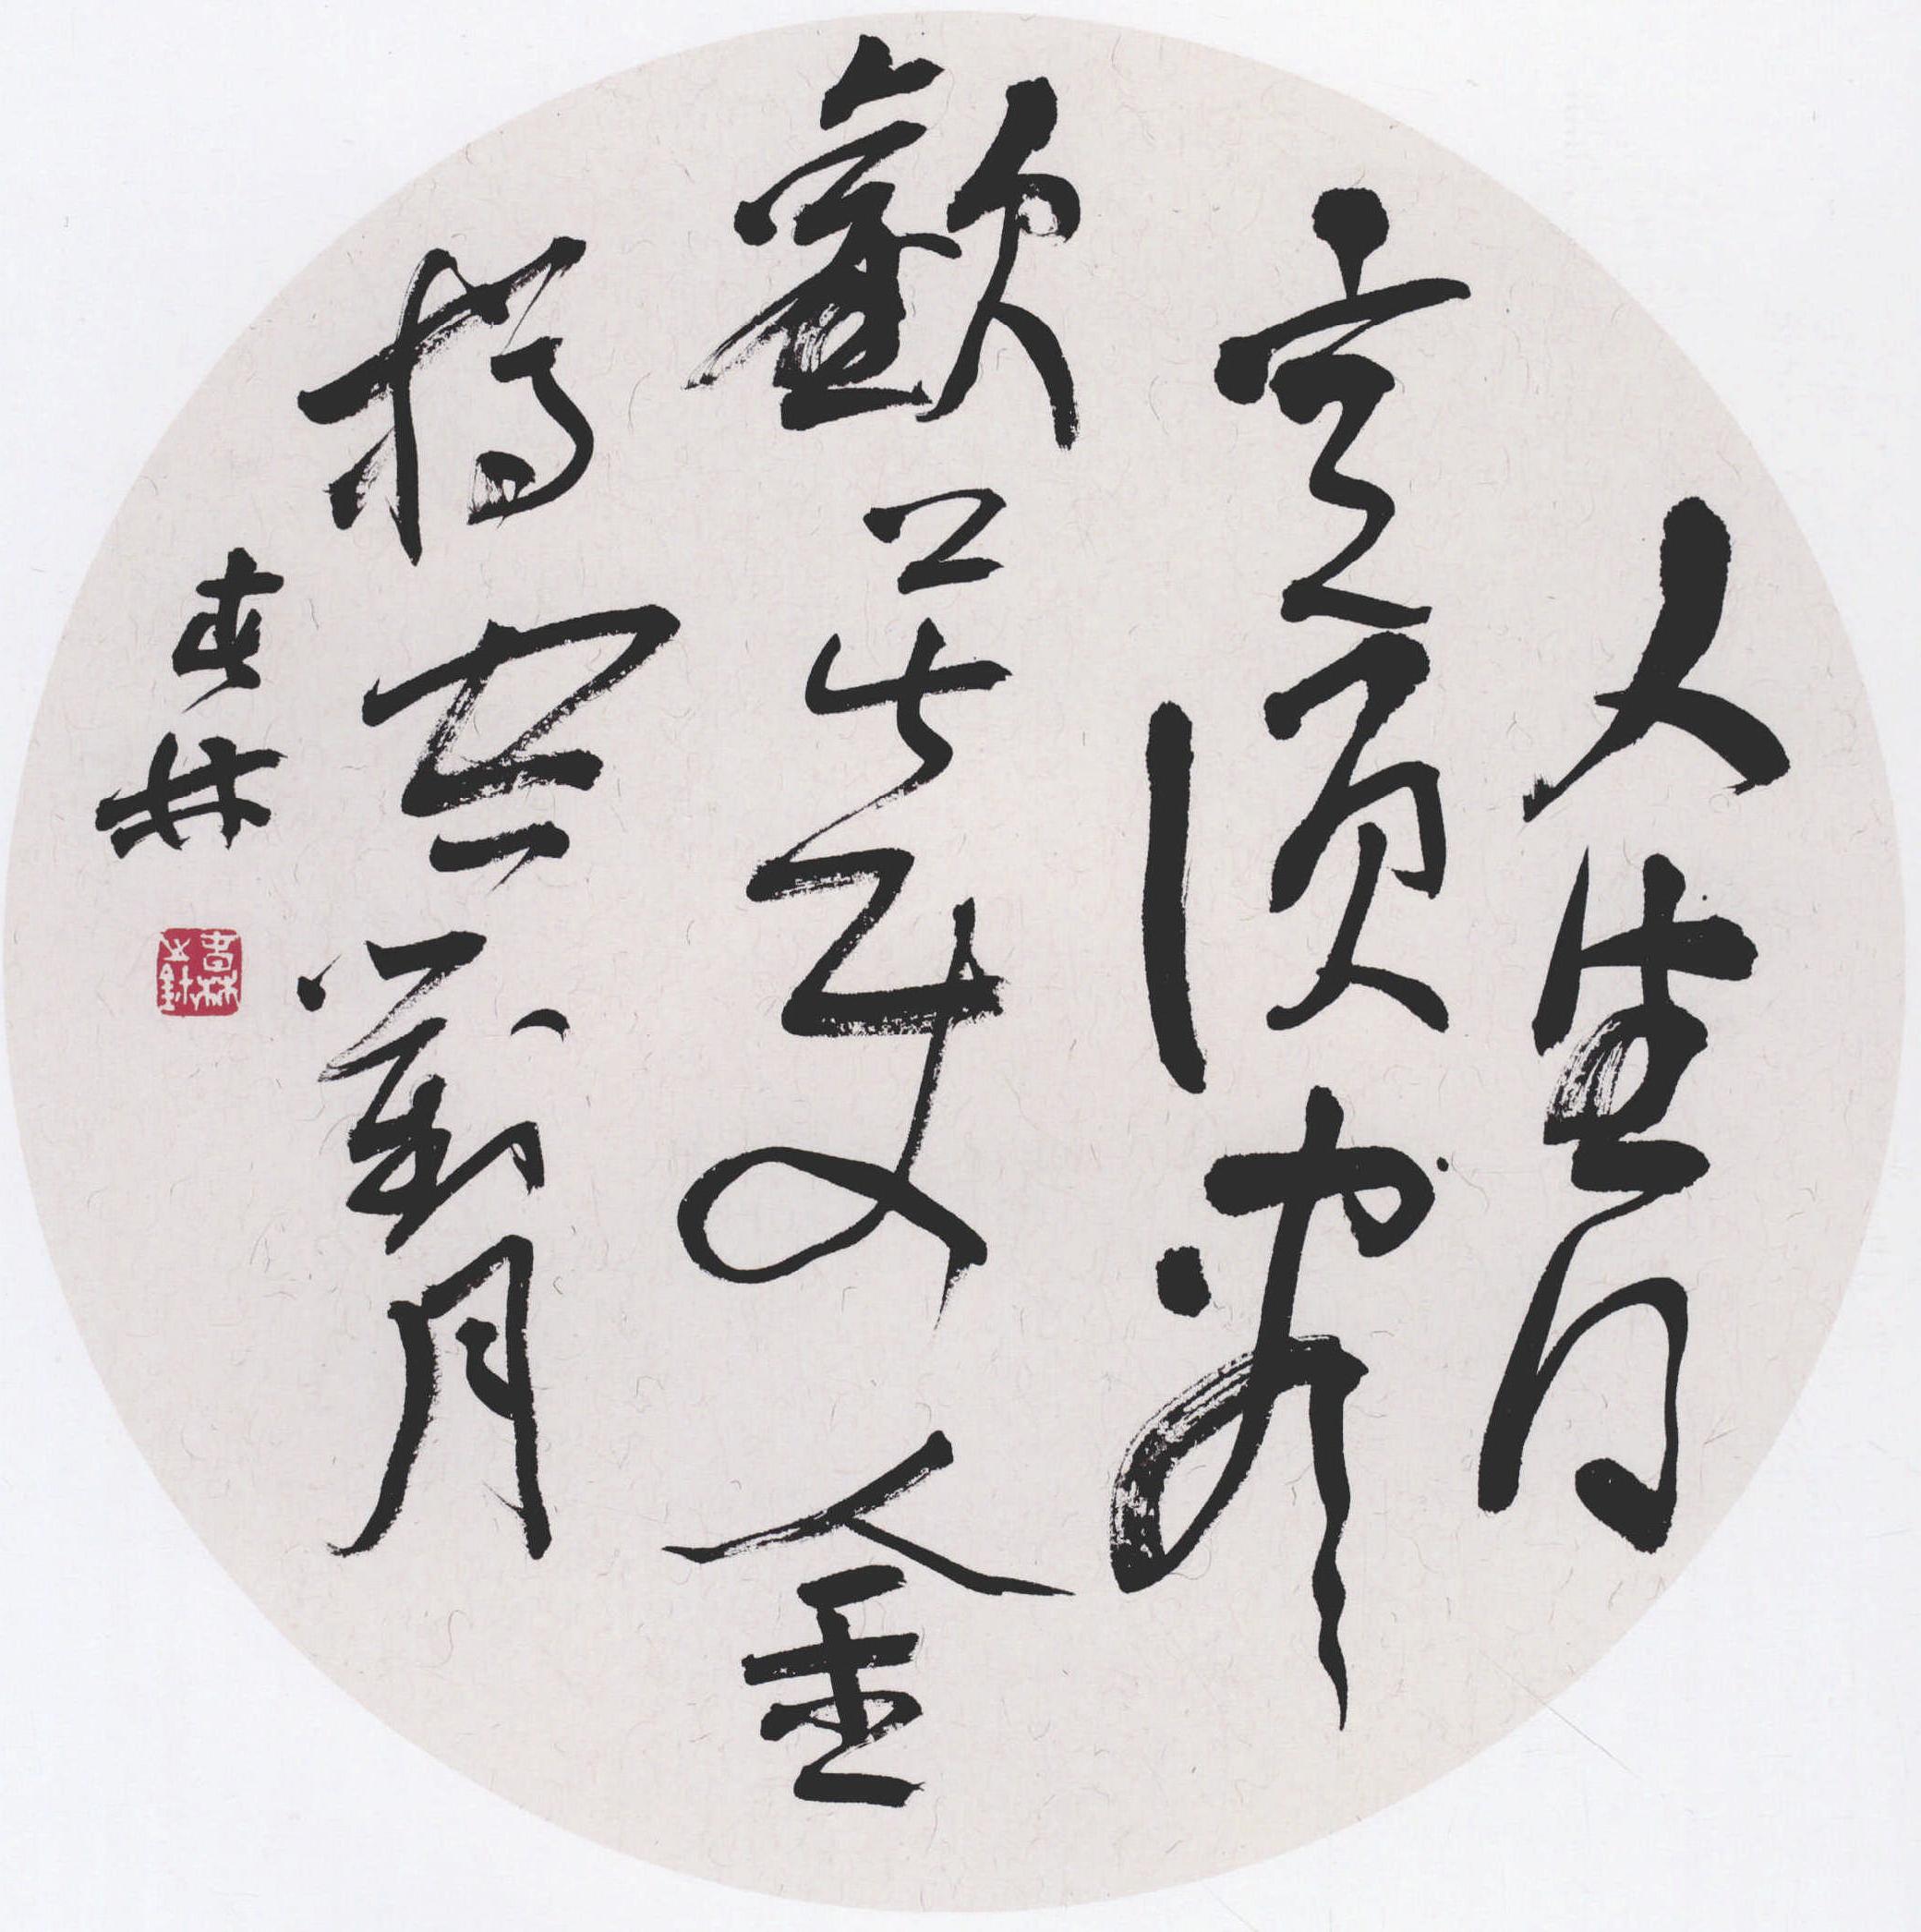 人生得
意須盡
歡莫使金
樽空對月
春林